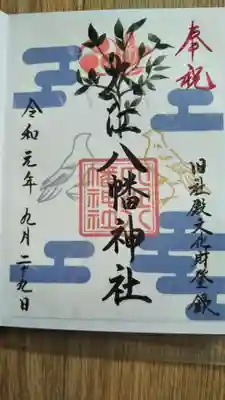 奉祝
旧社殿文化財登録
大江八幡神社
令和元年 九月 二十九日